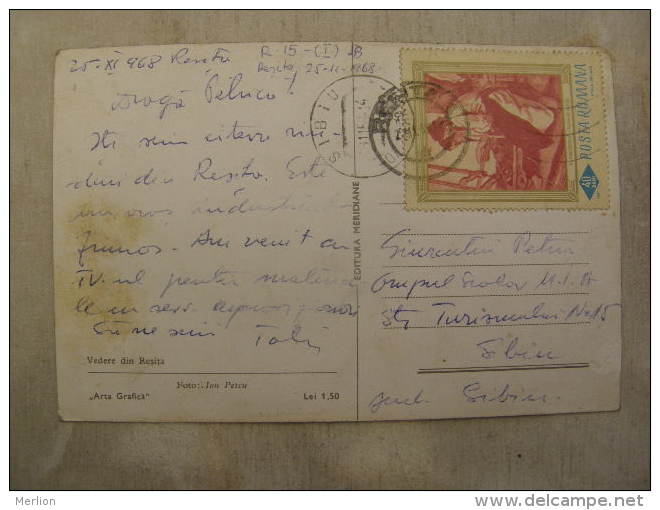 25-XI 968 Reșița
R-15-(I) B
Reșița, 25-11-1968
Dragă Petrică!
Iți scriu citeva rîn-
duri din Reșița. Este
un oraș industrial
frumos. Am venit cu
IV-ul pentru
le cu serv.
Tati
Vedere din Reșița
Foto: Ion Petcu
„Arta Grafică” Lei 1,50
EDITURA MERIDIANE
SIBIU
REȘIȚA
POSTA ROMANA
40 BANI
Petru
Grupul Școlar M.I.A
Str Turismului No 15
Sibiu
jud. Sibiu
Merlion
www.delcampe.net